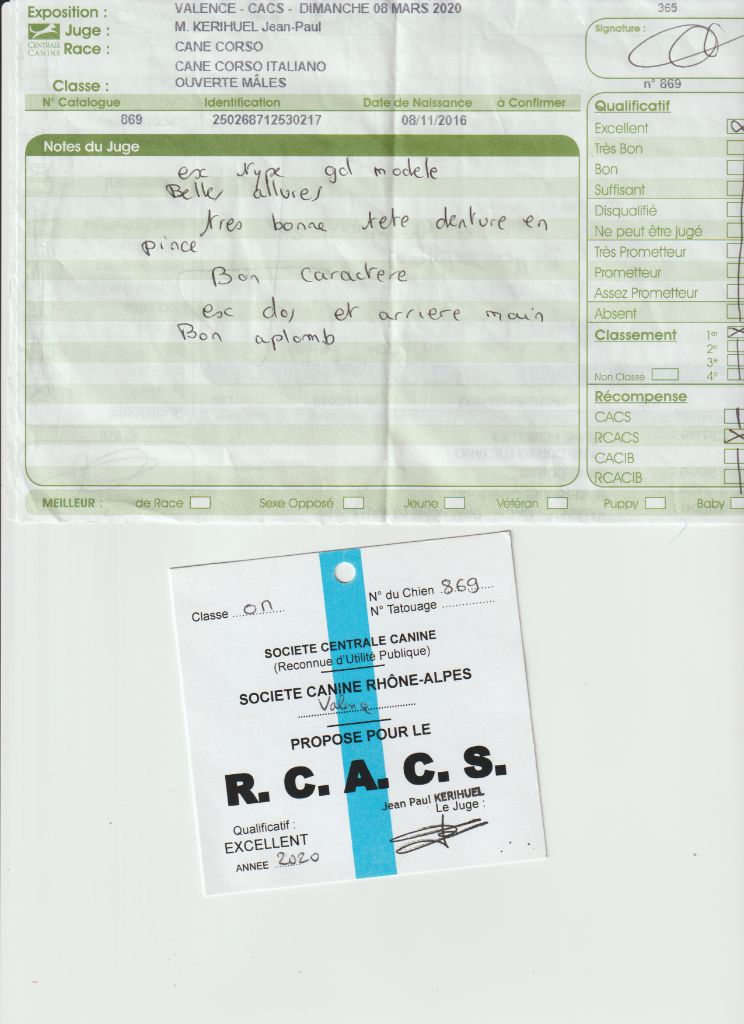 Exposition : VALENCE - CACS - DIMANCHE 08 MARS 2020 365
Juge : M. KERIHUEL Jean-Paul
CENTRALE CANINE
Race : CANE CORSO
CANE CORSO ITALIANO
Classe : OUVERTE MÂLES
Signature :
n° 869
N° Catalogue Identification Date de Naissance à Confirmer
869 250268712530217 08/11/2016
Notes du Juge
ex type gd modele
Belles allures
tres bonne tete denture en
pince
Bon caractere
exc dos et arriere main
Bon aplomb
Qualificatif
Excellent
Très Bon
Bon
Suffisant
Disqualifié
Ne peut être jugé
Très Prometteur
Prometteur
Assez Prometteur
Absent
Classement 1er
2e
3e
Non Classé 4e
Récompense
CACS
RCACS
CACIB
RCACIB
MEILLEUR : de Race Sexe Opposé Jeune Vétéran Puppy Baby
Classe on
N° du Chien 869
N° Tatouage
SOCIETE CENTRALE CANINE
(Reconnue d'Utilité Publique)
SOCIETE CANINE RHÔNE-ALPES
Valence
PROPOSE POUR LE
R. C. A. C. S.
Jean Paul KERIHUEL
Le Juge :
Qualificatif :
EXCELLENT
ANNEE 2020